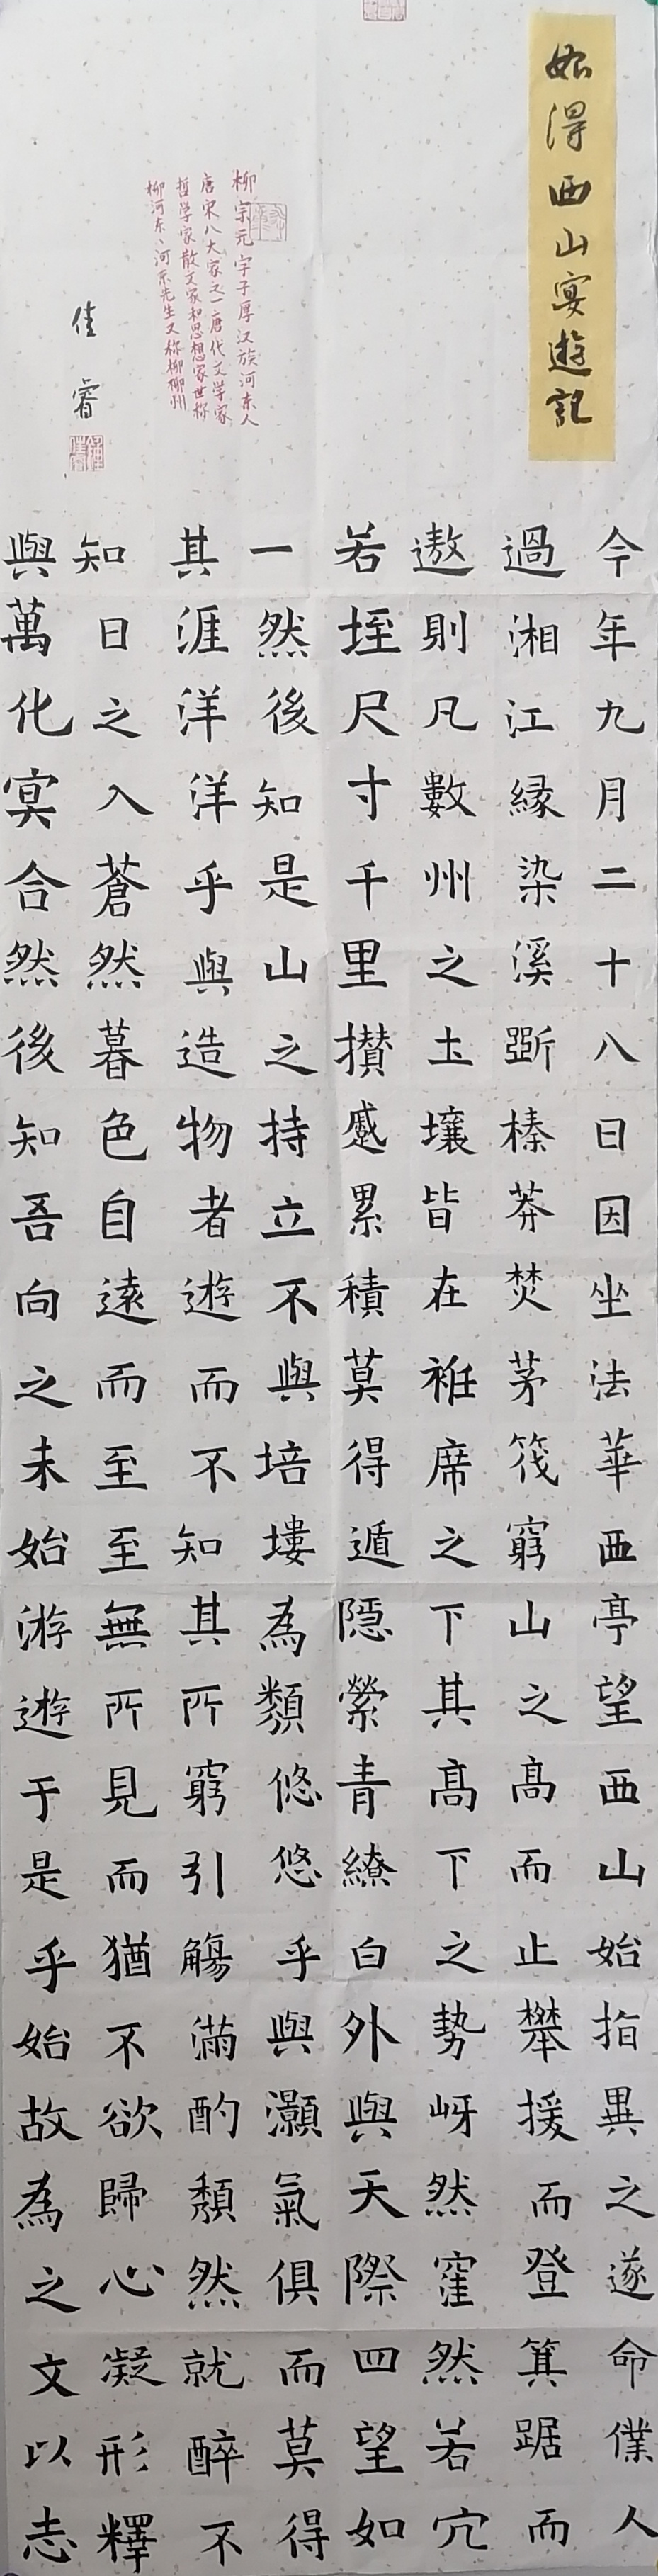 始得西山宴遊記
柳宗元字子厚汉族河东人
唐宋八大家之一唐代文学家
哲学家散文家和思想家世称
柳河东、河东先生又称柳柳州
佳睿
今年九月二十八日因坐法華西亭望西山始指異之遂命僕人
過湘江縁染溪斲榛莽焚茅筏窮山之髙而止攀援而登箕踞而
遨則凡數州之土壤皆在袵席之下其髙下之勢岈然窪然若穴
若垤尺寸千里攢蹙累積莫得遁隱縈青繚白外與天際四望如
一然後知是山之持立不與培塿為類悠悠乎與灝氣俱而莫得
其涯洋洋乎與造物者遊而不知其所窮引觴滿酌頹然就醉不
知日之入蒼然暮色自遠而至至無所見而猶不欲歸心凝形釋
與萬化冥合然後知吾向之未始游遊于是乎始故為之文以志